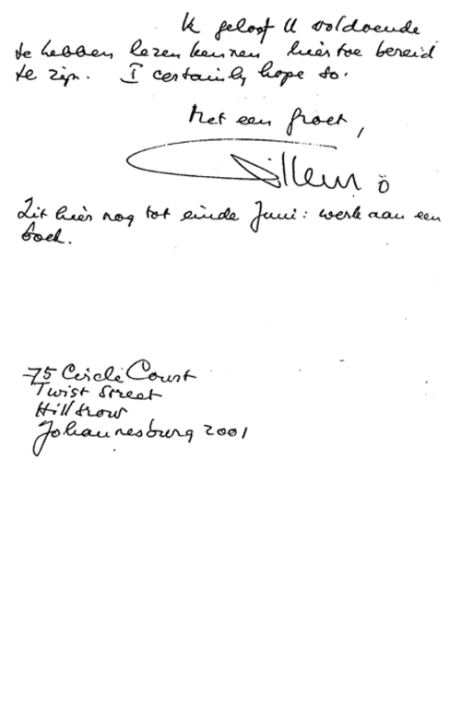 Ik geloof U voldoende
te hebben leren kennen hiertoe bereid
te zijn. I certainly hope so.
Met een groet,
Willem
Zit hier nog tot einde Juni: werk aan een
boek.
75 Circle Court
Twist Street
Hillbrow
Johannesburg 2001